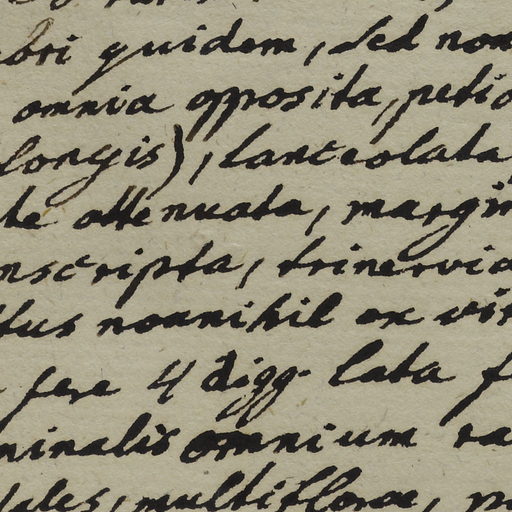 quidem, sed non
omnia opposita, petio
longis), lanceolata
te attenuata, margin
nscripta, trinervia
tus nonnihil ex vir
fere 4 digg. lata f
minalis omnium ra
ales, multiflorae, p